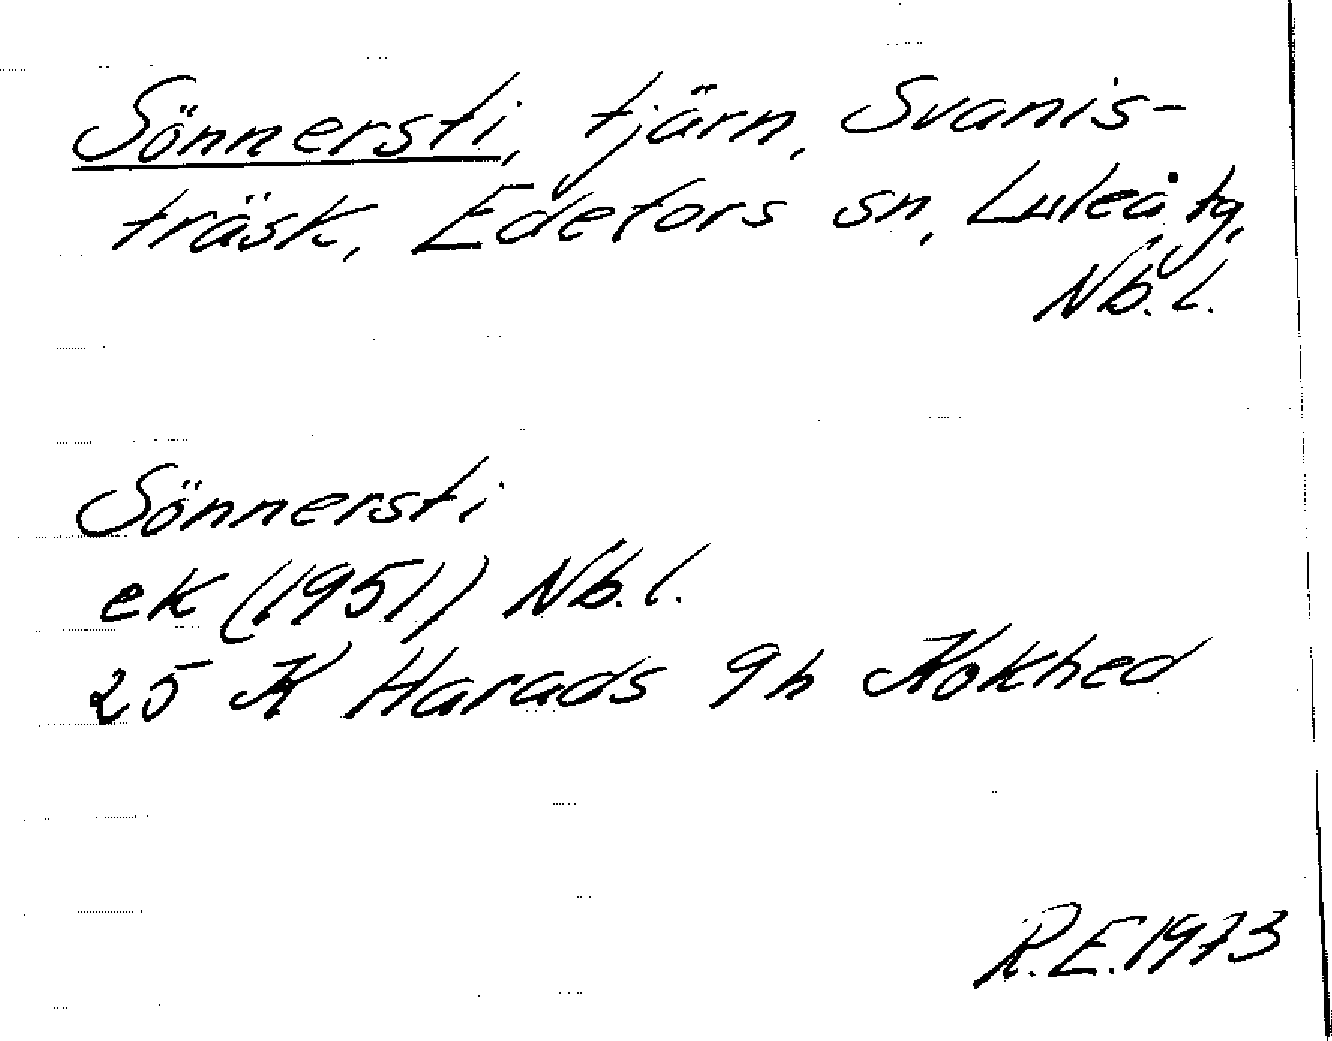 Sönnersti, tjärn, Svanis-
träsk, Edefors sn, Luleå tg,
Nb. l.
Sönnersti
ek (1951) Nb. l.
25 K Harads 9h Kokhed
R.E. 1973